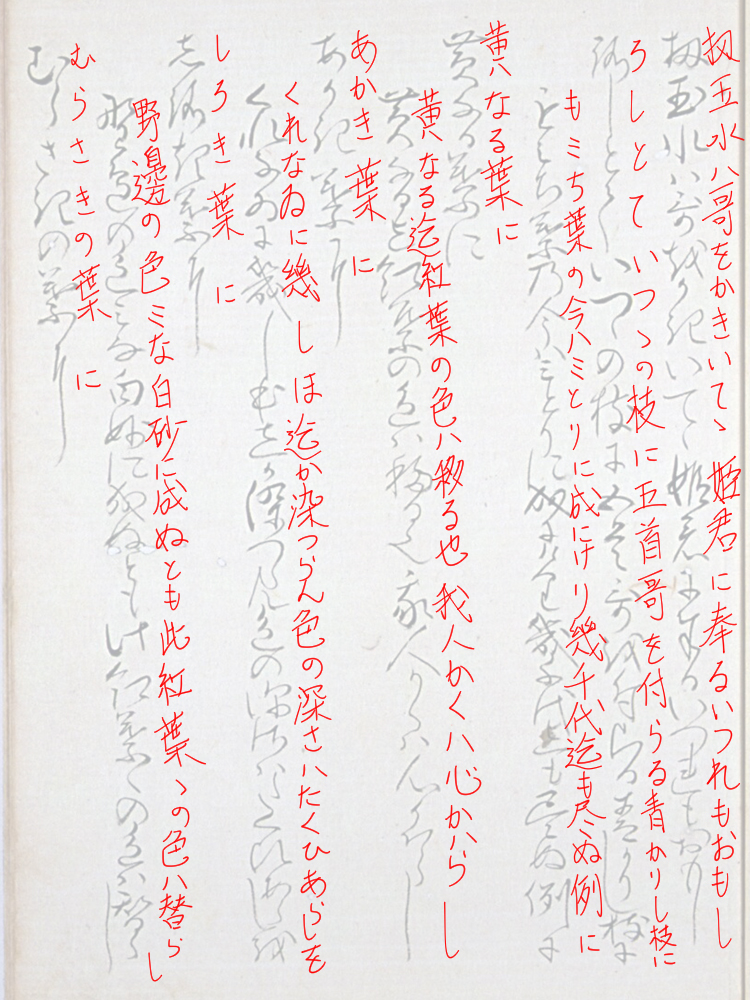 扨玉水ハ哥をかきいてゝ姫君に奉るいつれもおもし
ろしとていつゝの枝に五首哥を付らる青かりし枝に
もミち葉の今ハミとりに成にけり幾千代迄も尽ぬ例に
黄なる葉に
黄なる迄紅葉の色ハ移る也我人かくハ心かハらし
あかき葉に
くれなゐに幾しほ迄か染つらん色の深さハたくひあらしを
しろき葉に
野邊の色ミな白砂に成ぬとも此紅葉ゝの色ハ替らし
むらさきの葉に